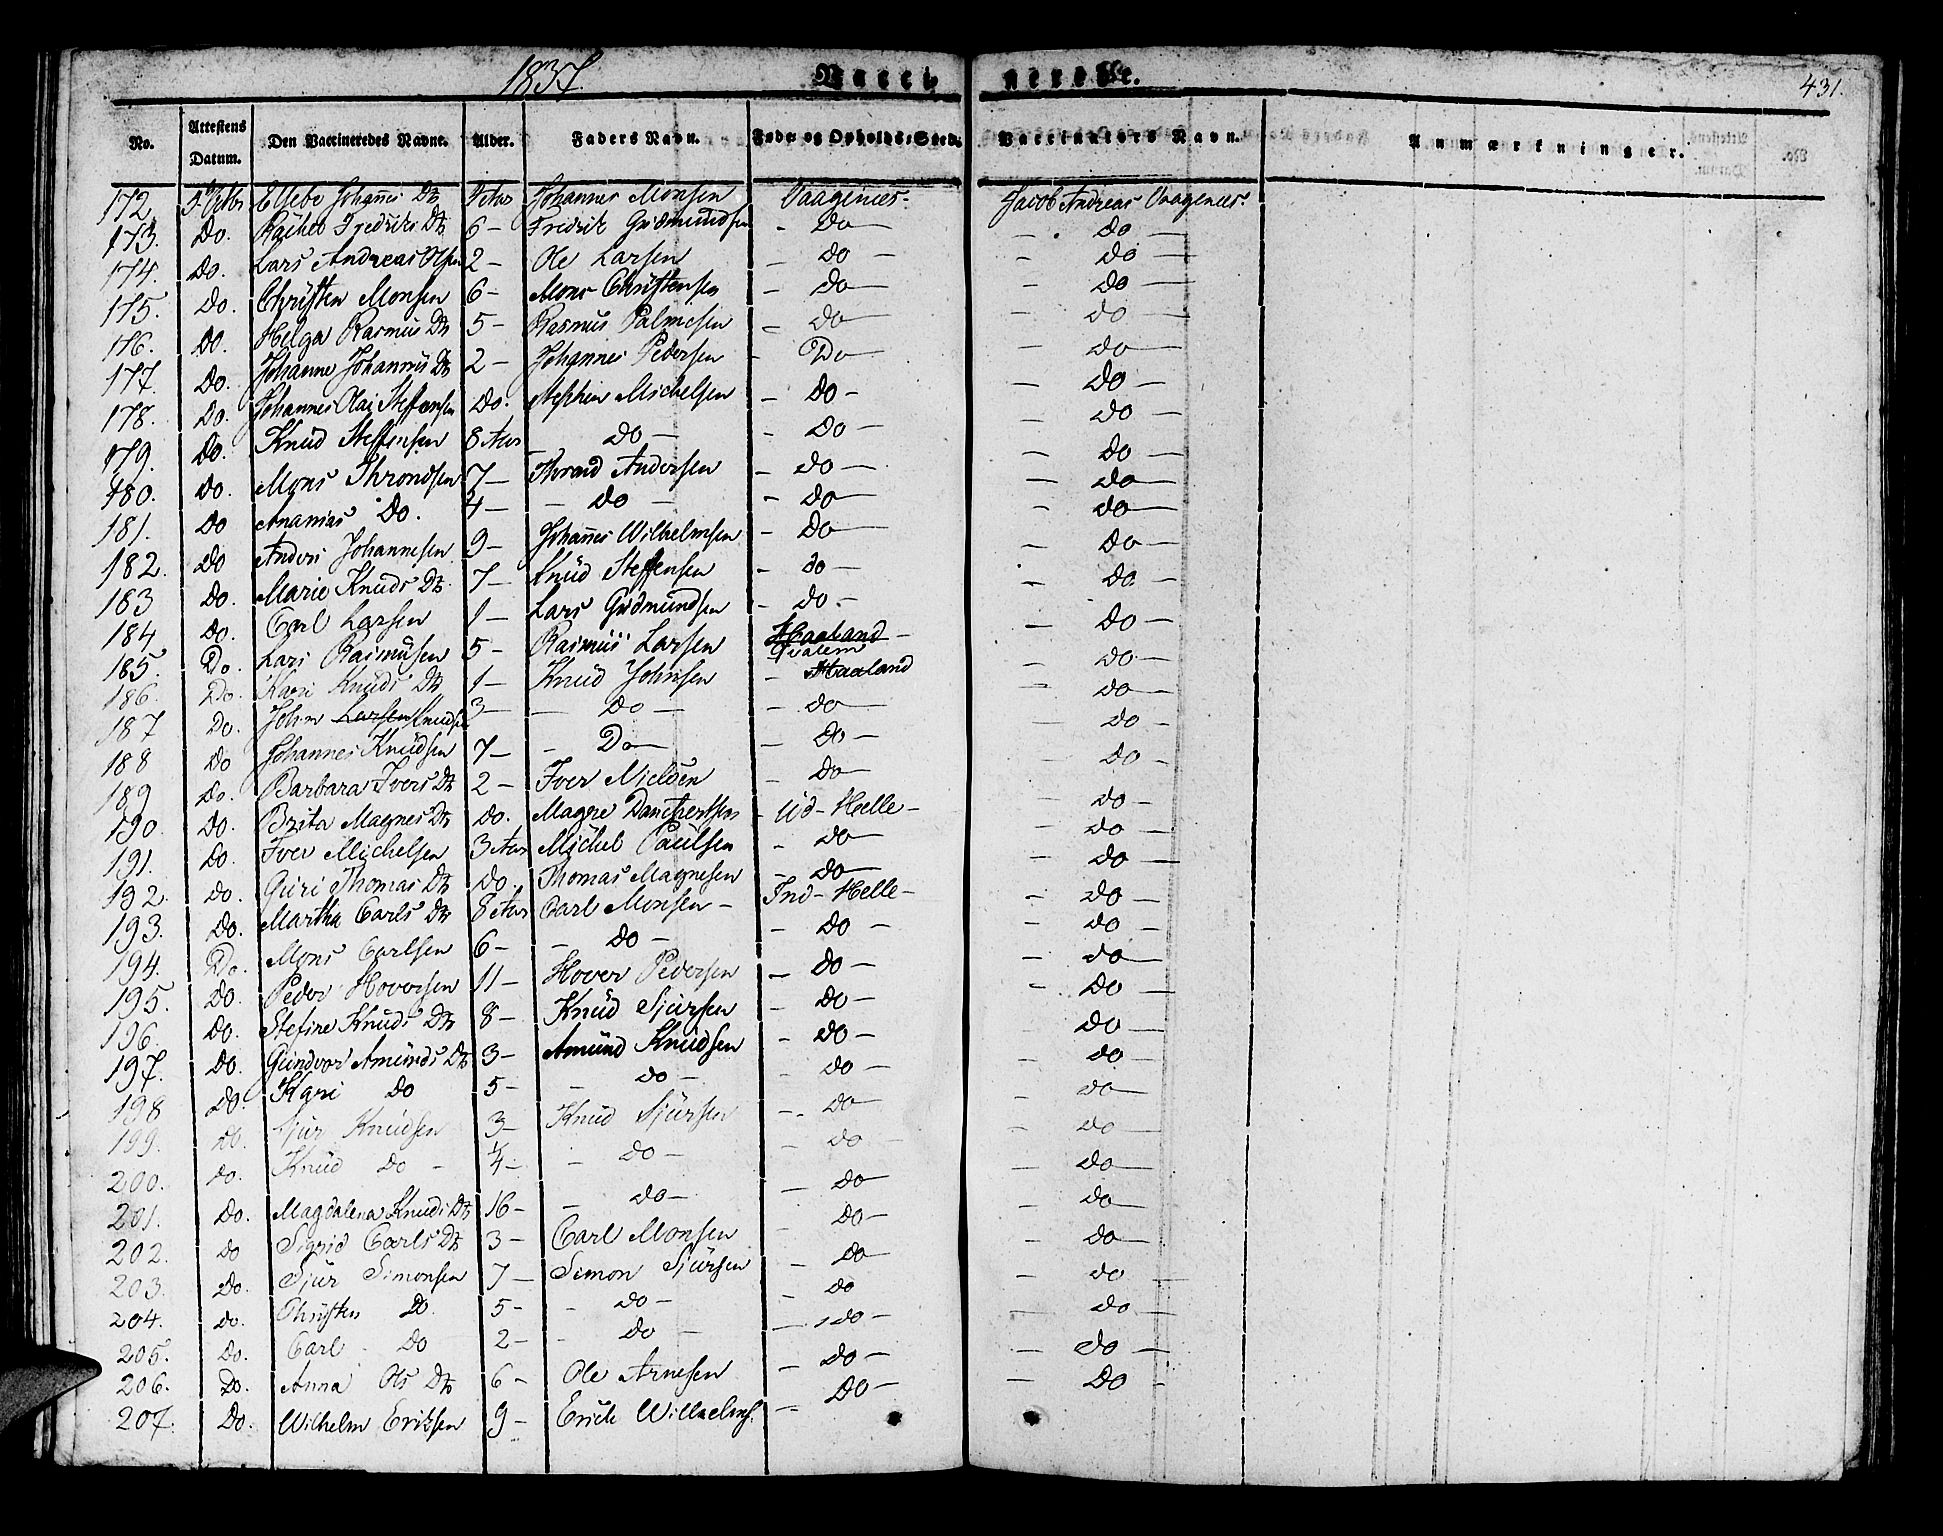 1837. Vacci nerede. 431.
No. Attestens Datum. Den Vaccineredes Navne. Alder. Faders Navn. Føde og Opholds-Sted. Vaccinators Navn. Anmærkninger.
172 Ellebe Johannes Dtr 4 Aar Johannes Monsen Vaagenes- Jacob Andreas Vaagenæs
173. Do. Rachel Fredriks Dtr 6 - Fredrik Gudmundsen - Do - - Do -
174. Do. Lars Andreas Olsen 2 - Ole Larsen - do - - do -
175. Do. Christen Monsen 6 - Mons Christensen - do - - do -
176. Do. Helga Rasmus Dtr 5 - Rasmus Palmesen - do - - do -
177. Do. Johanne Johannes Dtr 2 - Johannes Pedersen - Do - - do -
178. Do. Johannes Olai Steffensen Do. Stephen Michelsen - do - - do -
179. Do. Knud Steffensen 8 Aar - do - - Do - - do -
180. Do. Mons Throndsen 7 - Thrond Andersen - do - - do -
181. Do Ananias Do. 4 - - do - - do - - do -
182. Do Anders Johannesen 9 - Johannes Wilhelmsen - do - - do -
183 Do. Marie Knuds Dtr. 7 - Knud Steffensen - do - - do -
184 Do. Carl Larsen 1 - Lars Gudmundsen - do - - do -
185. Do. Lars Rasmusen 5 - Rasmus Larsen Haaland - - do -
186. Do. Kari Knuds Dtr 1 - Knud Johnsen - Haaland - do -
187 Do. John Larsen Knudsen 3 - - do - - do - - do -
188 do Johannes Knudsen 7 - - Do - - do - - do -
189 do. Barbara Ivers Dtr 2 - Iver Nielsen - do - - do -
190. Do. Brita Magnes Dtr do. Magne Danchertsen - Ud-Helle - - do -
191. Do. Iver Michelsen 3 Aar Michel Paulsen - do - - do -
192. do. Guri Thomas Dtr do. Thomas Magnesen - do - - do -
193. do. Martha Carls Dtr 8 Aar Carl Monsen - Ind-Helle - - do -
194. Do. Mons Carlsen 6 - - do - - do - - do -
195. Do. Peder Hoversen 11 - Hover Pedersen - do - - do -
196. Do. Stefine Knuds Dtr 8 - Knud Sjursen - do - - do -
197. Do. Gundvor Amunds Dtr 3 - Amund Knudsen - do - - do -
198 Do. Kari do 5 - - do - - do - - do -
199. Do. Sjur Knudsen 3 - Knud Sjursen - do - - do -
200. do. Knud do - 1/4 - - do - - do - - do -
201. Do. Magdalena Knuds Dtr 16 - - do - - do - - do -
202. do Sigrid Carls Dtr 3 - Carl Monsen - do - - do -
203. Do. Sjur Simonsen 7 - Simon Sjursen - do - - do -
204. do. Christen Do. 5 - - do - - do - do -
205. Do. Carl do 2 - - do - - do - - do -
206. Do. Anna Ols Dtr 6 - Ole Arnesen - do - - Do -
207. Do. Wilhelm Eriksen 9 - Erich Wilhelms. - do -